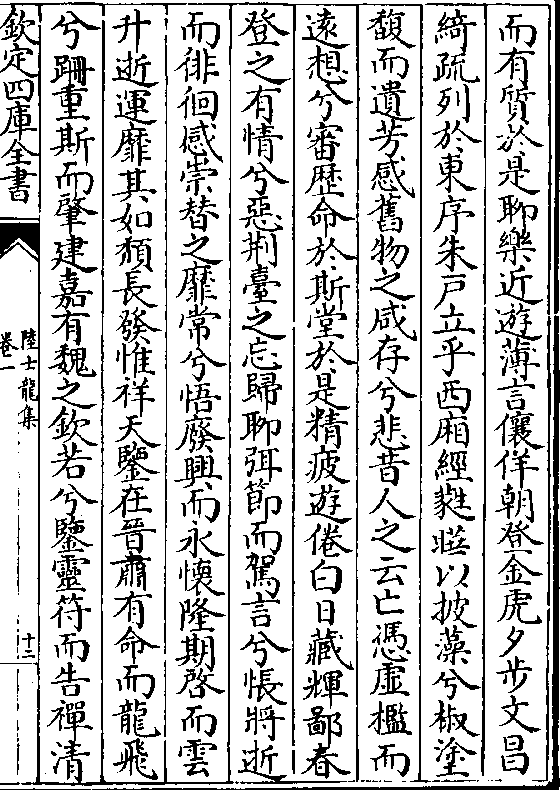 而有質於是聊樂近遊薄言儴佯朝登金虎夕步文昌
綺疏列於東序朱戸立乎西廂經蕤㽵以披藻兮椒塗
馥而遺芳感舊物之咸存兮悲昔人之云亡慿虚檻而
遠想兮審歴命於斯堂於是精疲遊倦白日藏輝鄙春
登之有情兮惡荆臺之忘歸聊弭節而駕言兮悵將逝
而徘徊感崇替之靡常兮悟廢興而永懷隆期啓而雲
升逝運靡其如頽長發惟祥天鑒在晉肅有命而龍飛
兮跚重斯而肇建嘉有魏之欽若兮鑒靈符而告禪清
欽定四庫全書
陸士龍集
卷一
十二